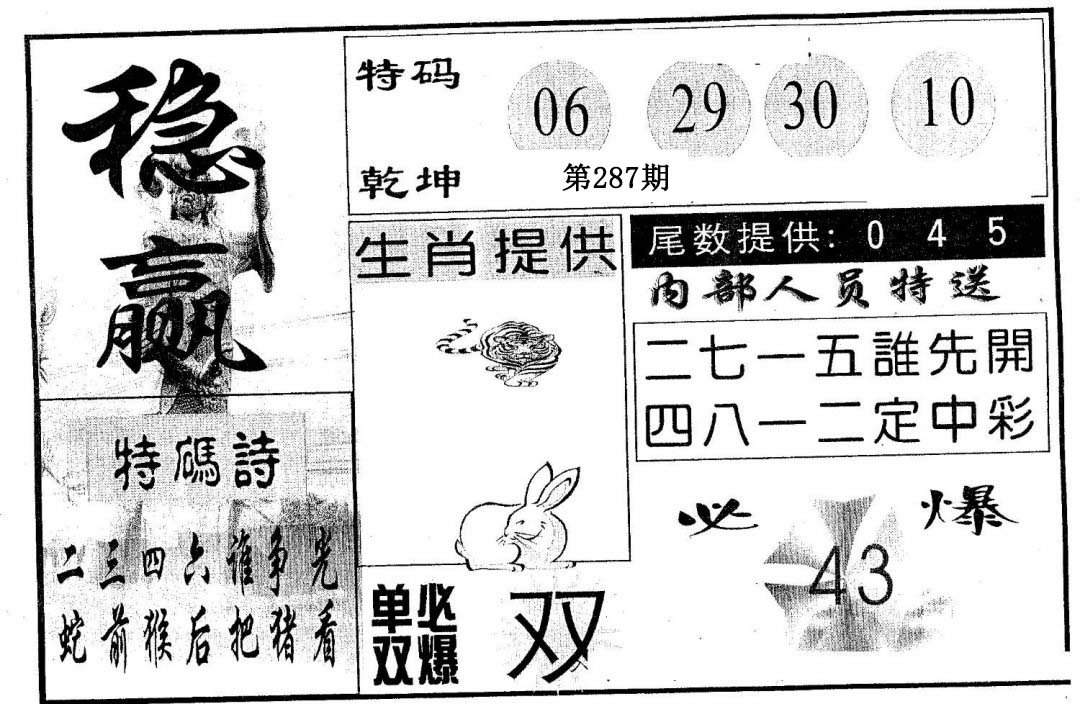 稳赢
特码
06 29 30 10
乾坤
第287期
生肖提供
尾数提供: 0 4 5
内部人员特送
二七一五誰先開
四八一二定中彩
特碼詩
二三四六谁争光
蛇前猴后把猪看
必爆
43
单双必爆
双